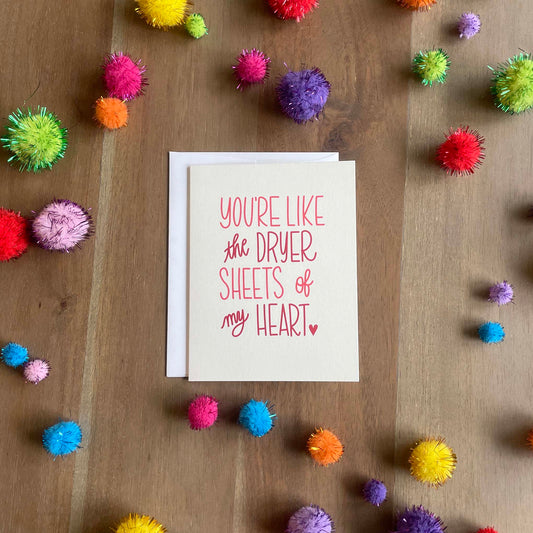 YOU'RE LIKE
the DRYER
SHEETS of
my HEART.